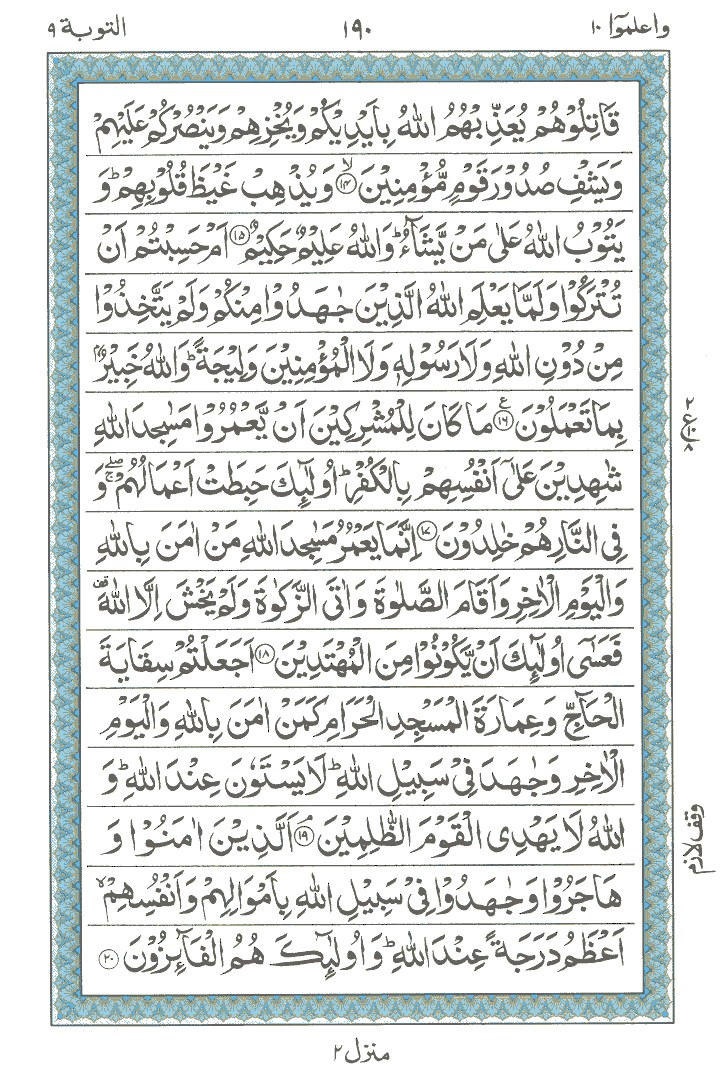 واعلموٓا ١٠
١٩٠
التوبة ٩
قَاتِلُوْهُمْ يُعَذِّبْهُمُ اللّٰهُ بِاَيْدِيْكُمْ وَيُخْزِهِمْ وَيَنْصُرْكُمْ عَلَيْهِمْ
وَيَشْفِ صُدُوْرَ قَوْمٍ مُّؤْمِنِيْنَ ۙ﴿١٤﴾ وَيُذْهِبْ غَيْظَ قُلُوْبِهِمْ ؕ وَ
يَتُوْبُ اللّٰهُ عَلٰى مَنْ يَّشَآءُ ؕ وَاللّٰهُ عَلِيْمٌ حَكِيْمٌ ﴿١٥﴾ اَمْ حَسِبْتُمْ اَنْ
تُتْرَكُوْا وَلَمَّا يَعْلَمِ اللّٰهُ الَّذِيْنَ جٰهَدُوْا مِنْكُمْ وَلَمْ يَتَّخِذُوْا
مِنْ دُوْنِ اللّٰهِ وَلَا رَسُوْلِهٖ وَلَا الْمُؤْمِنِيْنَ وَلِيْجَةً ؕ وَاللّٰهُ خَبِيْرٌۢ
بِمَا تَعْمَلُوْنَ ﴿١٦﴾ ع مَا كَانَ لِلْمُشْرِكِيْنَ اَنْ يَّعْمُرُوْا مَسٰجِدَ اللّٰهِ
شٰهِدِيْنَ عَلٰٓى اَنْفُسِهِمْ بِالْكُفْرِ ؕ اُولٰٓئِكَ حَبِطَتْ اَعْمَالُهُمْ ۖۚ وَ
فِى النَّارِ هُمْ خٰلِدُوْنَ ﴿١٧﴾ اِنَّمَا يَعْمُرُ مَسٰجِدَ اللّٰهِ مَنْ اٰمَنَ بِاللّٰهِ
وَالْيَوْمِ الْاٰخِرِ وَاَقَامَ الصَّلٰوةَ وَاٰتَى الزَّكٰوةَ وَلَمْ يَخْشَ اِلَّا اللّٰهَ قف
فَعَسٰٓى اُولٰٓئِكَ اَنْ يَّكُوْنُوْا مِنَ الْمُهْتَدِيْنَ ﴿١٨﴾ اَجَعَلْتُمْ سِقَايَةَ
الْحَآجِّ وَعِمَارَةَ الْمَسْجِدِ الْحَرَامِ كَمَنْ اٰمَنَ بِاللّٰهِ وَالْيَوْمِ
الْاٰخِرِ وَجٰهَدَ فِىْ سَبِيْلِ اللّٰهِ ؕ لَا يَسْتَوٗنَ عِنْدَ اللّٰهِ ؕ وَ
اللّٰهُ لَا يَهْدِى الْقَوْمَ الظّٰلِمِيْنَ ۘ﴿١٩﴾ اَلَّذِيْنَ اٰمَنُوْا وَ
هَاجَرُوْا وَجٰهَدُوْا فِىْ سَبِيْلِ اللّٰهِ بِاَمْوَالِهِمْ وَاَنْفُسِهِمْ ۙ
اَعْظَمُ دَرَجَةً عِنْدَ اللّٰهِ ؕ وَاُولٰٓئِكَ هُمُ الْفَآئِزُوْنَ ﴿٢٠﴾
٢ ع ١٠ ٨
وقف لازم
منزل ٢